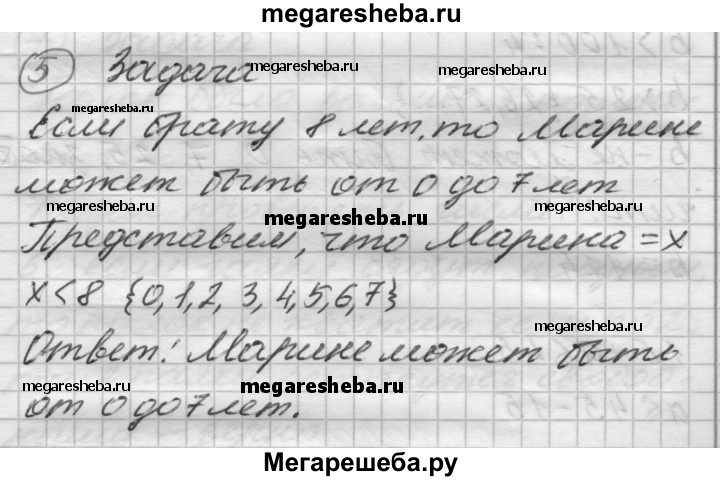 megaresheba.ru
5 Задача
megaresheba.ru megaresheba.ru
megaresheba.ru
Если брату 8 лет, то Марине
может быть от 0 до 7 лет
megaresheba.ru megaresheba.ru
megaresheba.ru
Представим, что Марина = x
x < 8 {0, 1, 2, 3, 4, 5, 6, 7}
megaresheba.ru
Ответ: Марине может быть
megaresheba.ru megaresheba.ru megaresheba.ru
от 0 до 7 лет.
Мегарешеба.ру